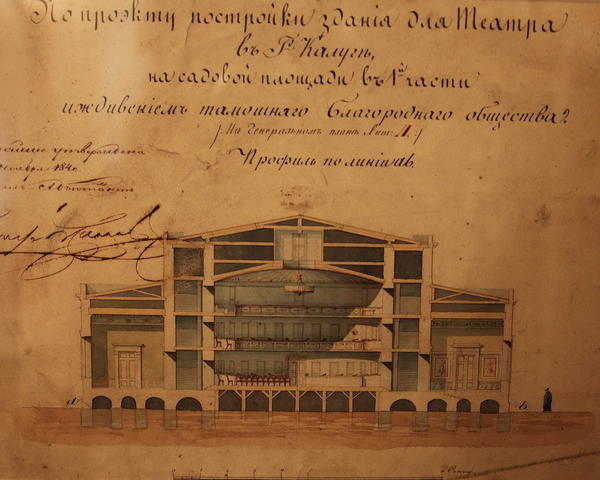 По проэкту постройки зданія для Театра
въ Гѣ Калугѣ,
на садовой площади въ 1й части
иждивеніемъ тамошняго Благороднаго общества.
/: На Генеральномъ планѣ Лит: А :/
Профиль по линіи ab.
утверждена
184
a b